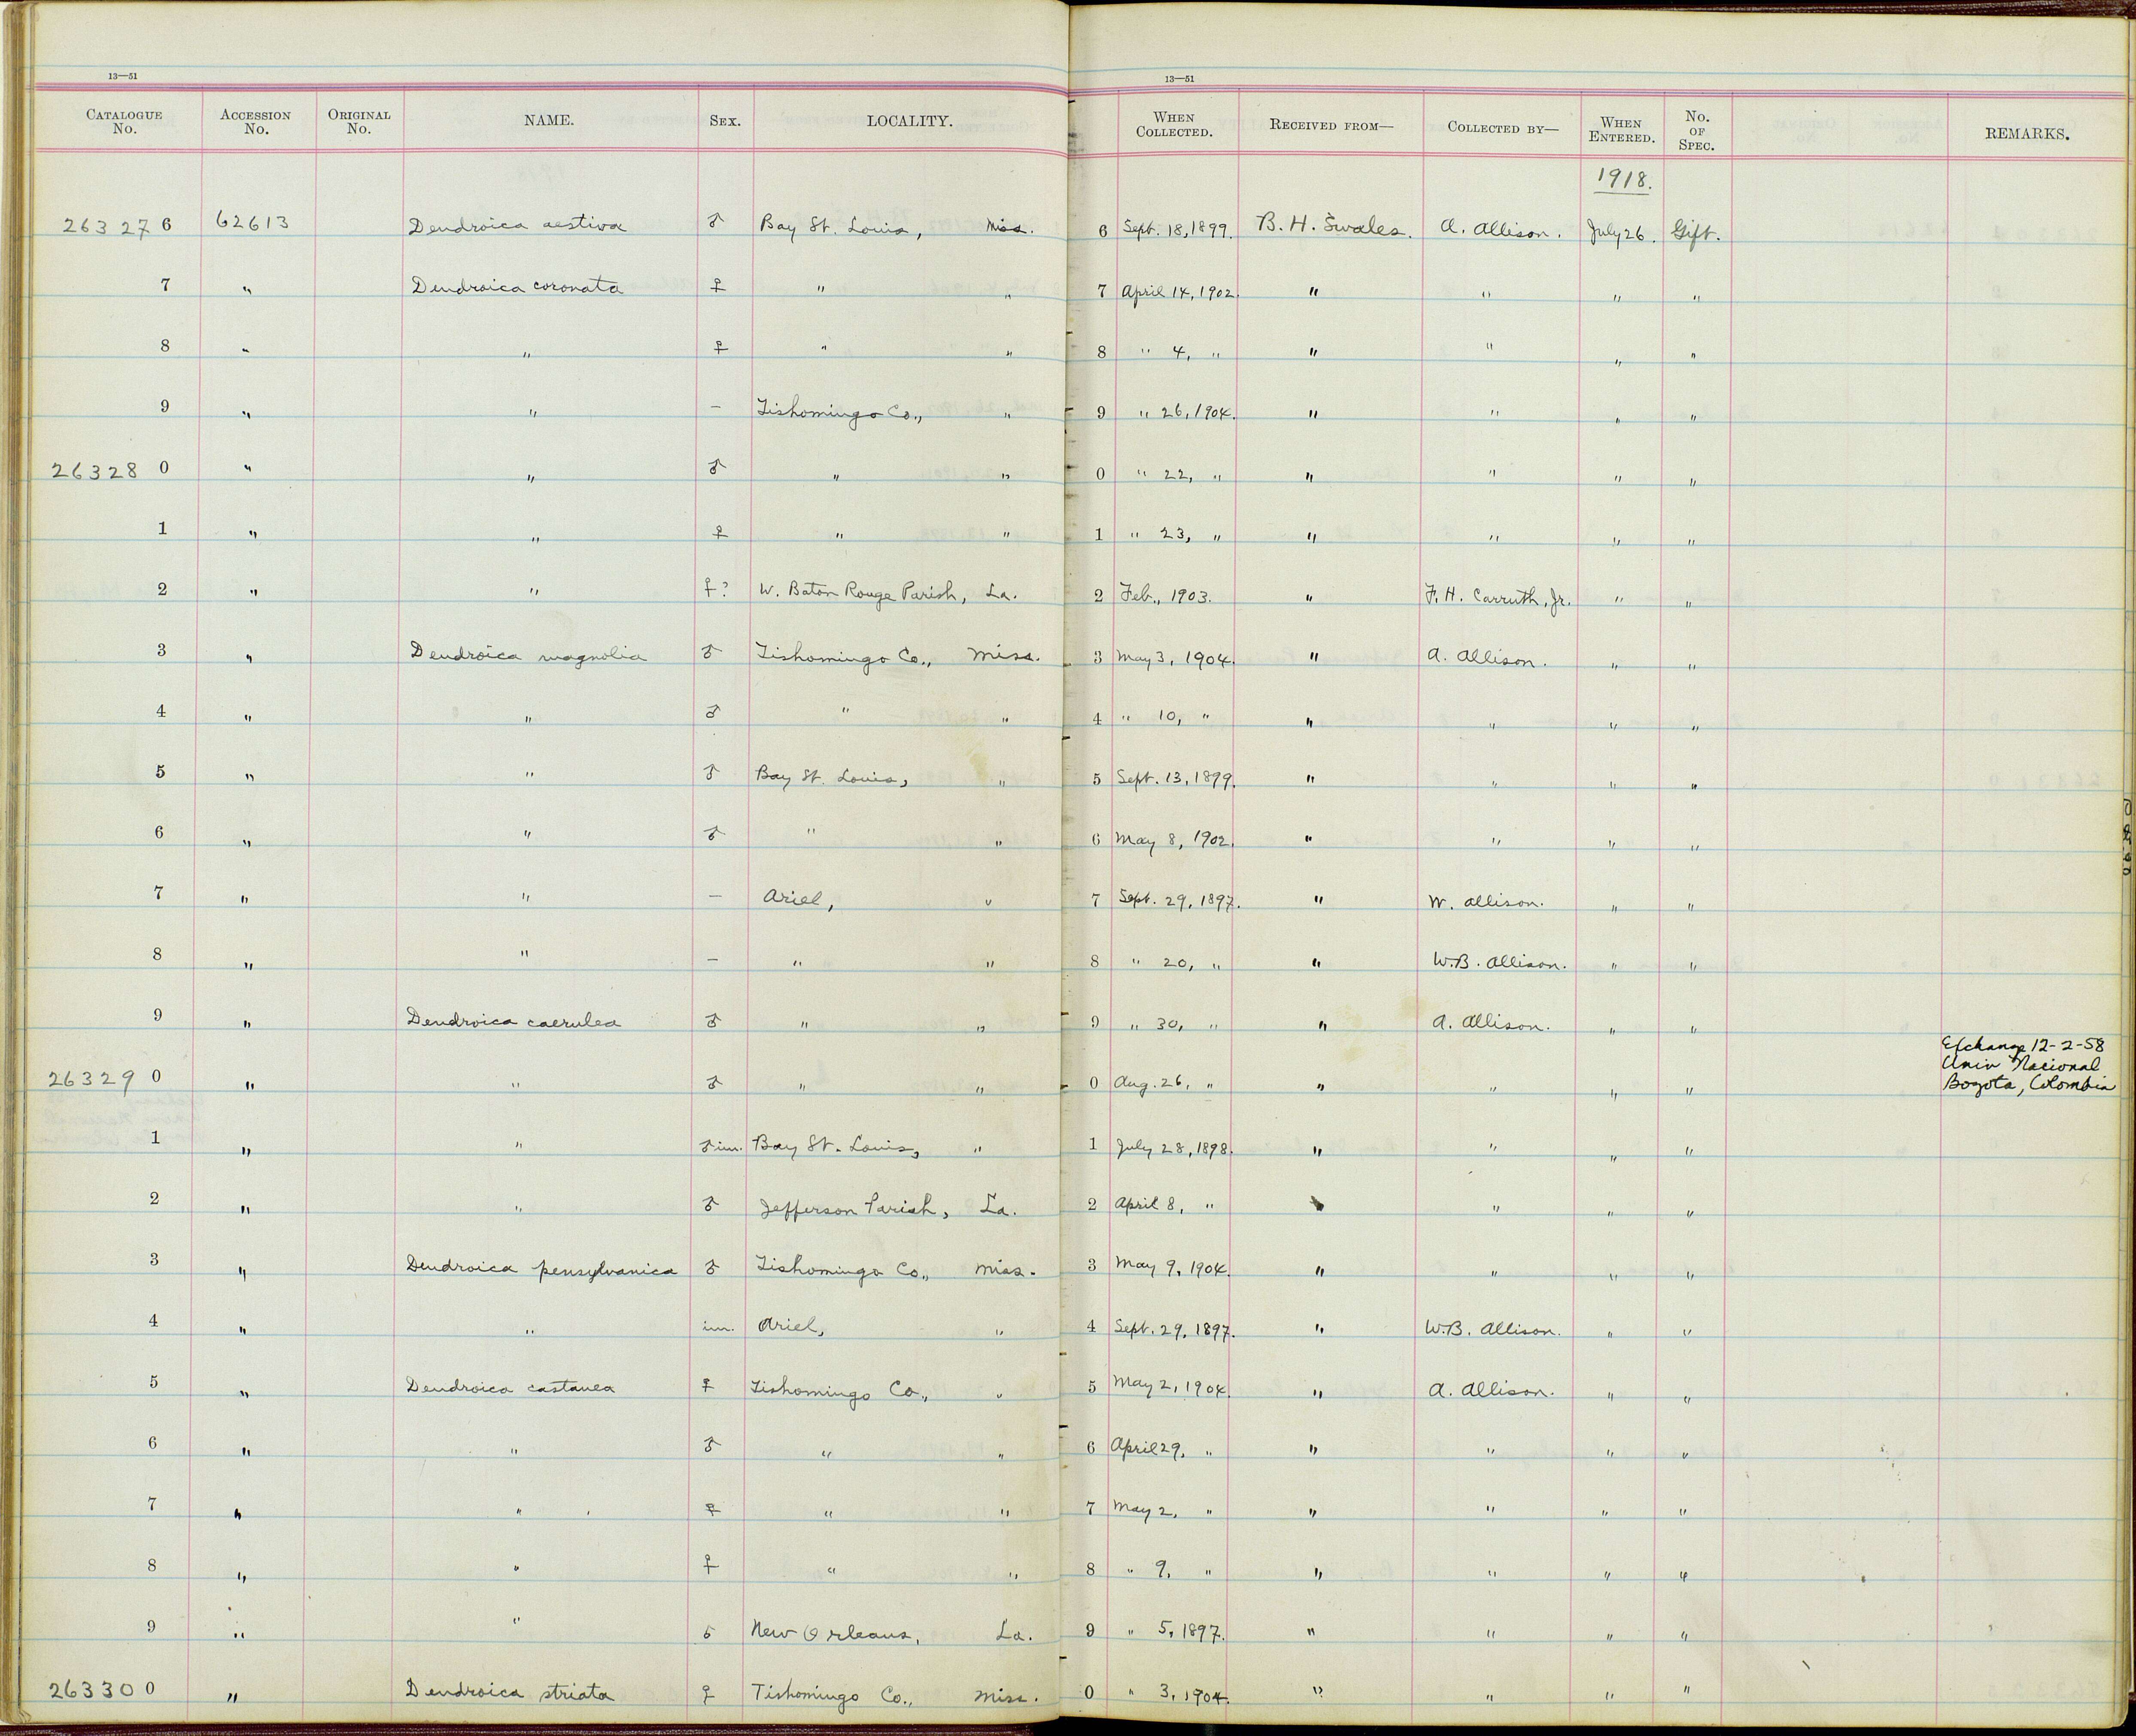 13—51 13—51
CATALOGUE No. ACCESSION No. ORIGINAL No. NAME. SEX. LOCALITY. WHEN COLLECTED. RECEIVED FROM— COLLECTED BY— WHEN ENTERED. No. OF SPEC. REMARKS.
1918.
263 27 6 62613 Dendroica aestiva ♂ Bay St. Louis, Miss. 6 Sept. 18, 1899. B. H. Swales. A. Allison. July 26. Gift.
7 " Dendroica coronata ♀ " " 7 April 14, 1902. " " " "
8 " " ♀ " " 8 " 4, " " " " "
9 " " – Tishomingo Co., " 9 " 26, 1904. " " " "
26328 0 " " ♂ " " 0 " 22, " " " " "
1 " " ♀ " " 1 " 23, " " " " "
2 " " ♀? W. Baton Rouge Parish, La. 2 Feb., 1903. " F. H. Carruth, Jr. " "
3 " Dendroica magnolia ♂ Tishomingo Co., Miss. 3 May 3, 1904. " A. Allison. " "
4 " " ♂ " " 4 " 10, " " " " "
5 " " ♂ Bay St. Louis, " 5 Sept. 13, 1899. " " " "
6 " " ♂ " " 6 May 8, 1902. " " " "
7 " " – Ariel, " 7 Sept. 29, 1897. " W. Allison. " "
8 " " – " " 8 " 20, " " W.B. Allison. " "
9 " Dendroica caerulea ♂ " " 9 " 30, " " A. Allison. " "
Exchange 12-2-58
Univ Nacional
Bogota, Colombia
26329 0 " " ♂ " " 0 Aug. 26, " " " " "
1 " " ♂ im. Bay St. Louis, " 1 July 28, 1898. " " " "
2 " " ♂ Jefferson Parish, La. 2 April 8, " " " " "
3 " Dendroica pensylvanica ♂ Tishomingo Co., Miss. 3 May 9, 1904. " " " "
4 " " im. Ariel, " 4 Sept. 29, 1897. " W.B. Allison. " "
5 " Dendroica castanea ♀ Tishomingo Co., " 5 May 2, 1904. " A. Allison. " "
6 " " ♂ " " 6 April 29, " " " " "
7 " " ♀ " " 7 May 2, " " " " "
8 " " ♀ " " 8 " 9, " " " " "
9 " " ♂ New Orleans, La. 9 " 5, 1897. " " " "
26330 0 " Dendroica striata ♀ Tishomingo Co., Miss. 0 " 3, 1904. " " " "